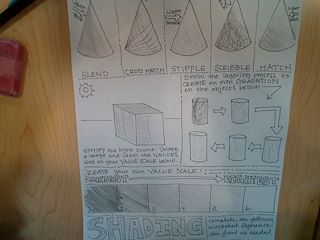 LIGHT
BLEND
CROSS HATCH
STIPPLE
SCRIBBLE
HATCH
SHOW the layering process to
CREATE an even GRADATION
on the objects below
IDENTIFY the light source. SHADE
image and label the VALUES
on your VALUE SCALE below.
CREATE your own VALUE SCALE:
DARKEST
LIGHTEST
5.
6.
SHADING
Complete the following
worksheet. Reference
the
as needed.